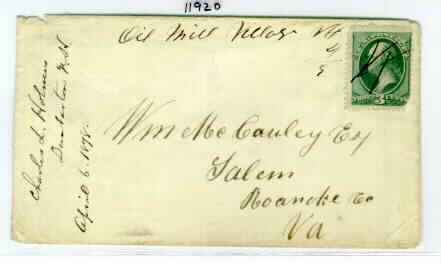 11920
Oil Mill Village NH
4/5
Charles L. Holmes
Dunbarton N.H.
April 6. 1878.
Wm McCauley Esq
Salem
Roanoke Co
Va
3